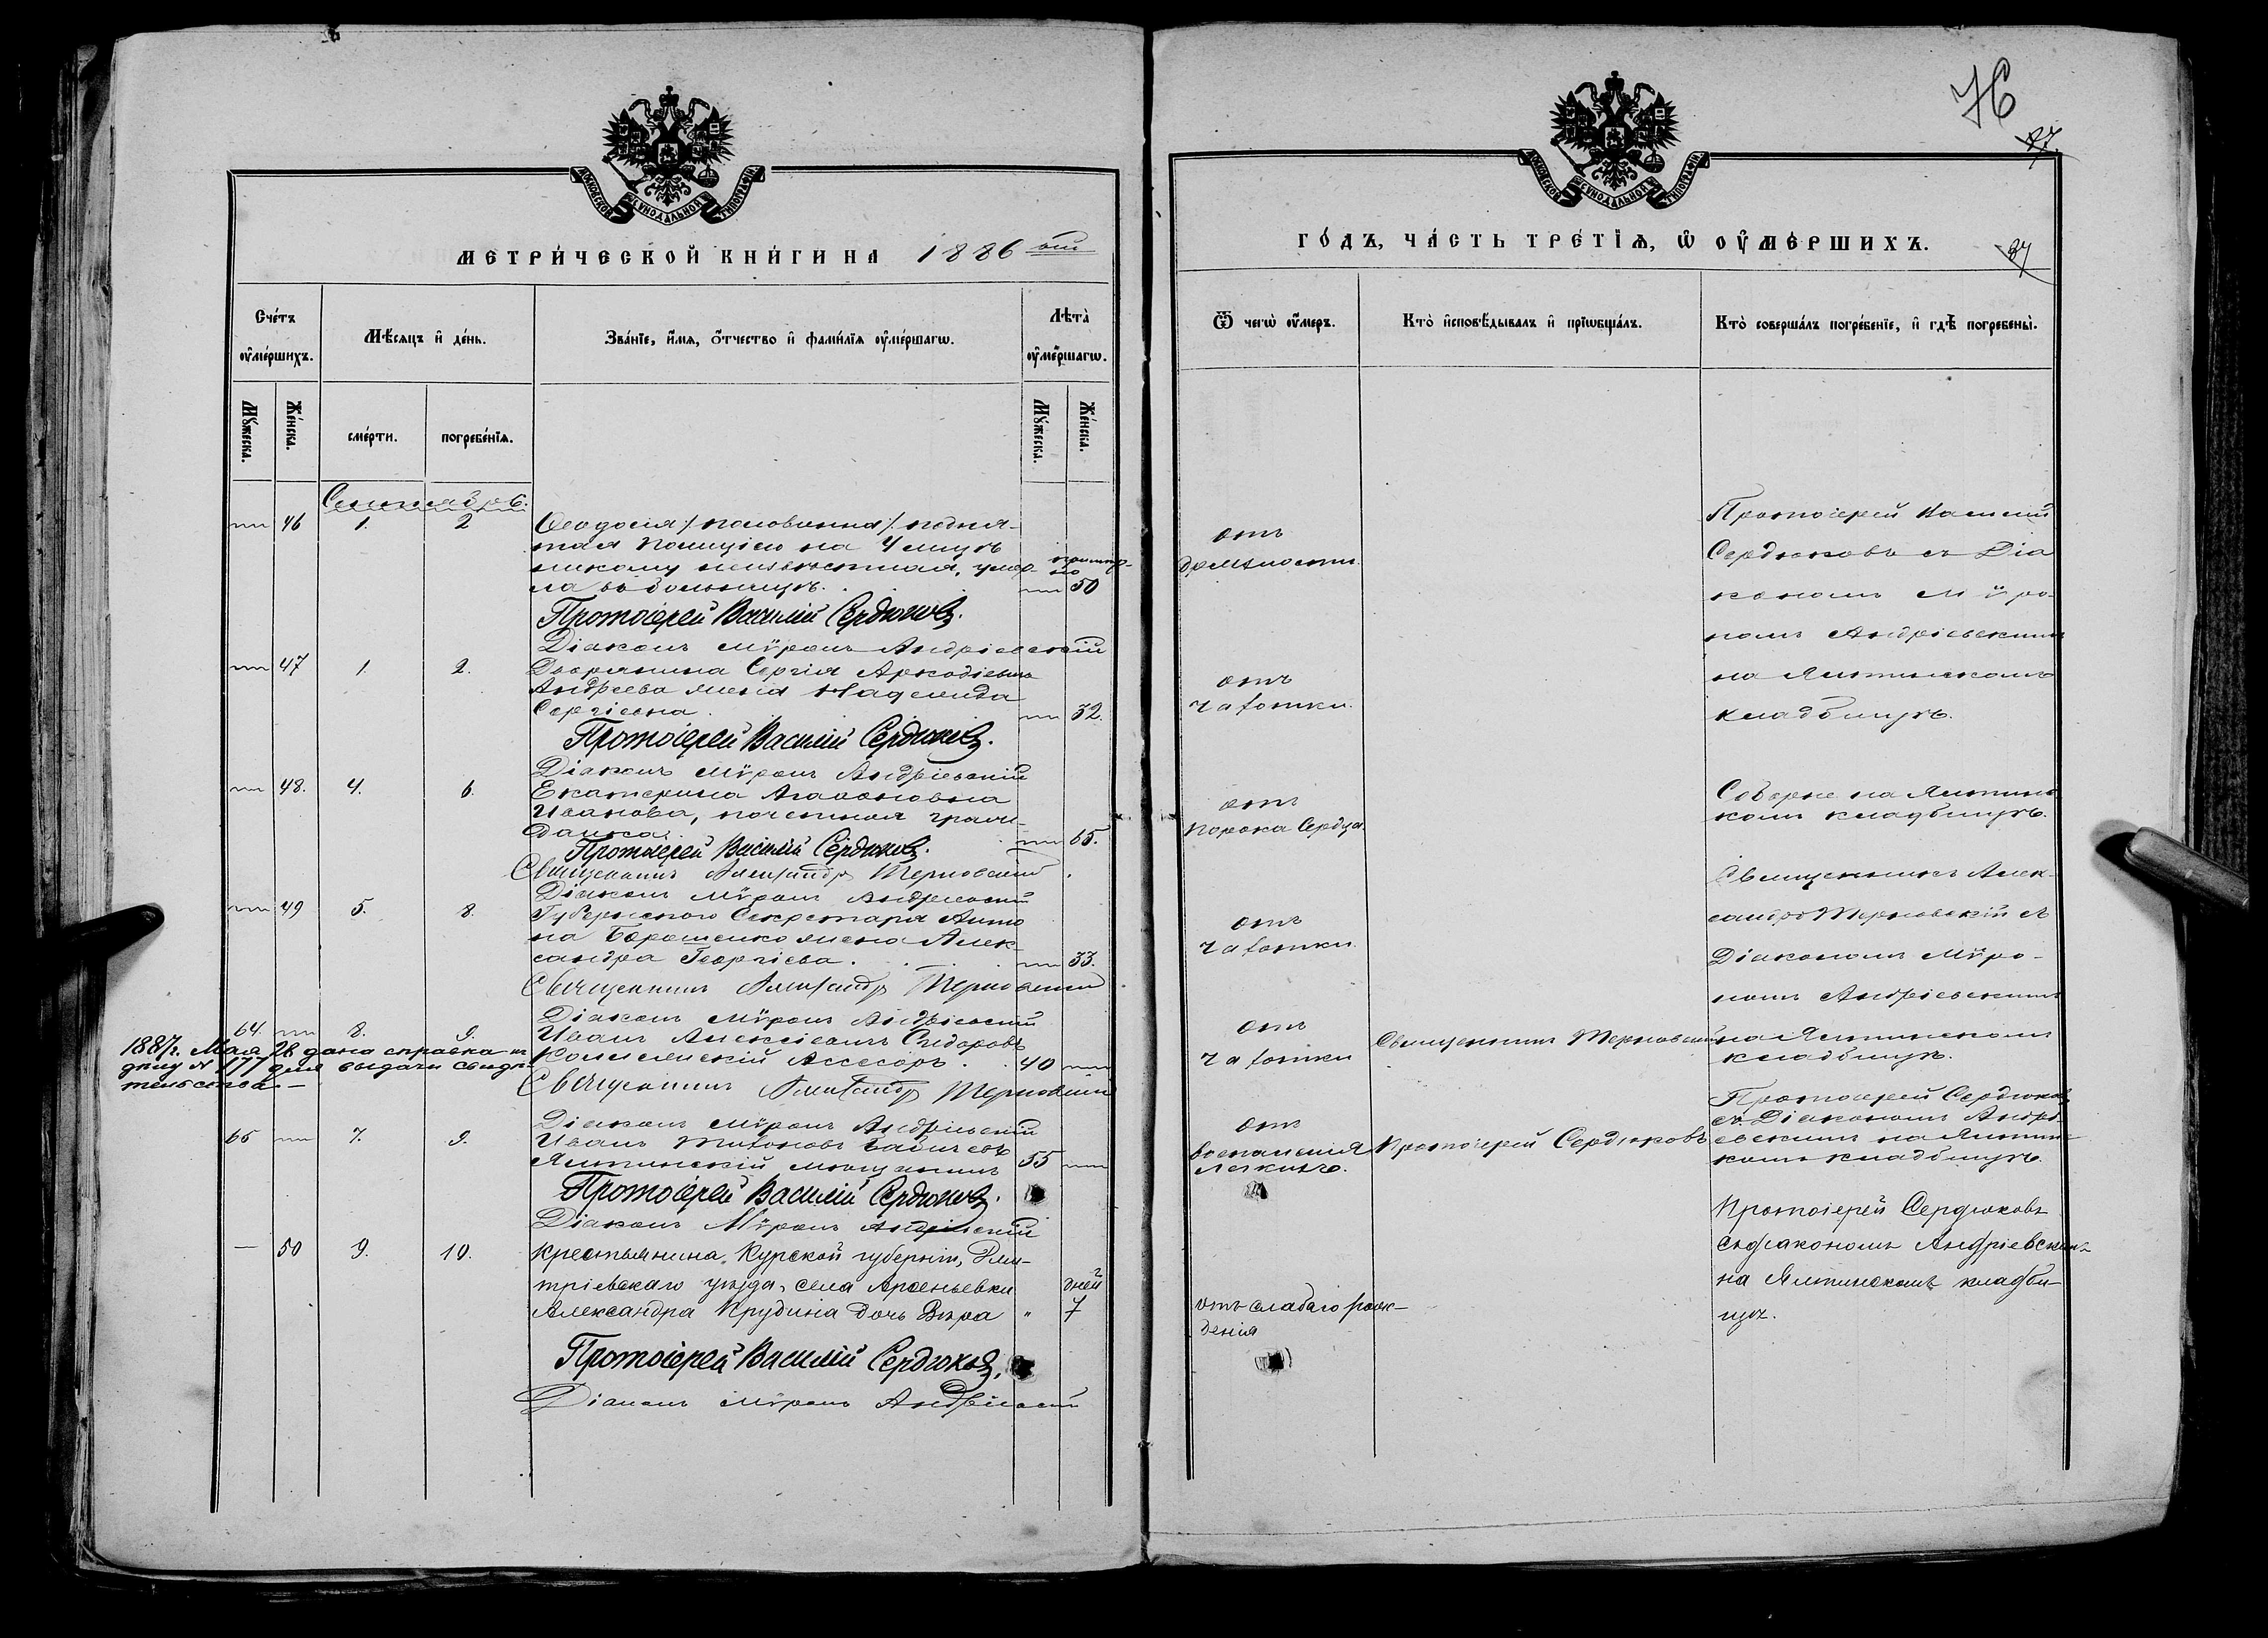 МОСКОВСКОЙ СѴНОДАЛЬНОЙ ТИПОГРАФІИ
МЕТРИ́ЧЕСКОЙ КНИ́ГИ НА 1886 ой
Сче́тъ ᲂу҆ме́ршихъ.
Мѣ́сяцъ и҆ де́нь.
Зва́нїе, и҆́мѧ, ѻ҆́тчество и҆ фами́лїѧ ᲂу҆ме́ршагѡ.
Лѣ́та ᲂу҆ме́ршагѡ.
Мꙋ́жеска.
Же́нска.
сме́рти.
погребе́нїѧ.
Мꙋ́жеска.
Же́нска.
Сентябрь.
46 1. 2
Ѳеодосія /половинна/ подня-
тая полиціею на улицѣ
никому неизвѣстная, умер-
ла въ больницѣ. 50
Протоіерей Василій Сердюковъ.
Діаконъ Мѵронъ Андріевскій
47 1. 2.
Дворянина Сергія Аркадіевича
Андреева жена Надежда
Сергіевна. 32.
Протоіерей Василій Сердюковъ.
Діаконъ Мѵронъ Андріевскій
48. 4. 6.
Екатерина Агаѳоновна
Иванова, почетная граж-
данка. 65.
Протоіерей Василій Сердюковъ.
Священникъ Александръ Терновскій
Діаконъ Мѵронъ Андріевскій
49 5. 8.
Губернскаго Секретаря Анто
на Борошенко жена Алек-
сандра Георгіева. 33.
Священникъ Александръ Терновскій
Діаконъ Мѵронъ Андріевскій
64. 8. 9.
Иванъ Алексіевичъ Сидоровъ
Коллежскій Ассесоръ. 40
1887г. Мая 28 дана справка къ
дѣлу № 177 для выдачи свидѣ-
тельства.—
Священникъ Александръ Терновскій
Діаконъ Мѵронъ Андріевскій
65 7. 9.
Иванъ Тихоновъ Бабичевъ
Ялтинскій мѣщанинъ 55
Протоіерей Василій Сердюковъ.
Діаконъ Мѵронъ Андріевскій
— 50 9. 10.
Крестьянина, Курской губерніи, Дми-
тріевскаго уѣзда, села Арсеньевки
Александра Прудина дочь Вѣра " дней 7
Протоіерей Василій Сердюковъ.
Діаконъ Мѵронъ Андріевскій
76
87
87
МОСКОВСКОЙ СѴНОДАЛЬНОЙ ТИПОГРАФІИ
ГО́ДЪ, ЧА́СТЬ ТРЕ́ТЇѦ, Ѡ҆ ОУ҆МЕ́РШИХЪ.
Ѿ чегѡ̀ ᲂу҆́меръ.
Кто̀ и҆сповѣ́дывалъ и҆ прїѡбща́лъ.
Кто̀ соверша́лъ погребе́нїе, и҆ гдѣ̀ погребены̀.
отъ
дряхлости.
Протоіерей Василій
Сердюковъ съ Діа
кономъ Мѵро-
номъ Андріевскимъ
на Ялтинскомъ
кладбищѣ.
отъ
чахотки.
отъ
порока Сердца.
Соборне на Ялтинс
комъ кладбищѣ.
отъ
чахотки.
Священникъ Алек-
сандръ Терновскій съ
Діакономъ Мѵро-
номъ Андріевскимъ
на Ялтинскомъ
кладбищѣ.
отъ
чахотки
Священникъ Терновскій
отъ
воспаленія
легкихъ.
Протоіерей Сердюковъ
Протоіерей Сердюковъ
съ Діакономъ Андрі-
евскимъ на Ялтинс
комъ кладбищѣ.
отъ слабаго рож-
денія
Протоіерей Сердюковъ
съ діакономъ Андріевскимъ
на Ялтинскомъ кладби-
щѣ.